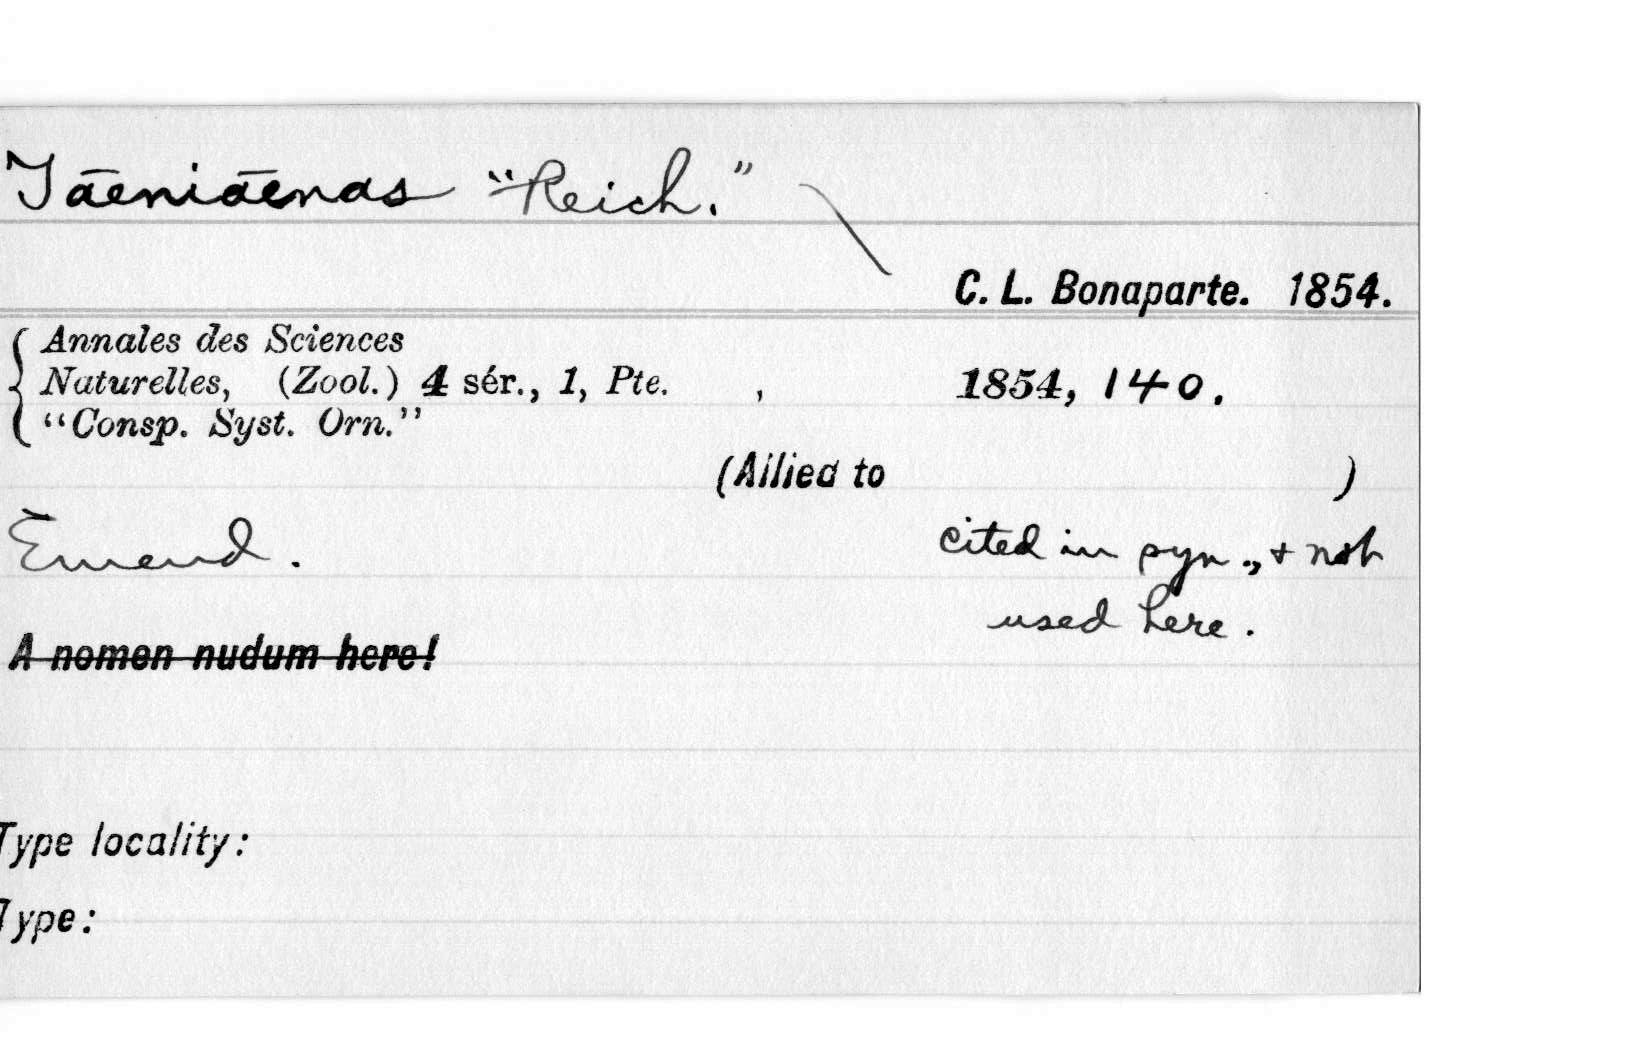 Tāeniāenas "Reich."
C. L. Bonaparte. 1854.
Annales des Sciences
Naturelles, (Zool.) 4 sér., 1, Pte. , 1854, 140.
"Consp. Syst. Orn."
(Allied to )
Emend. cited in syn., + not
used here.
A nomen nudum here!
Type locality:
Type: